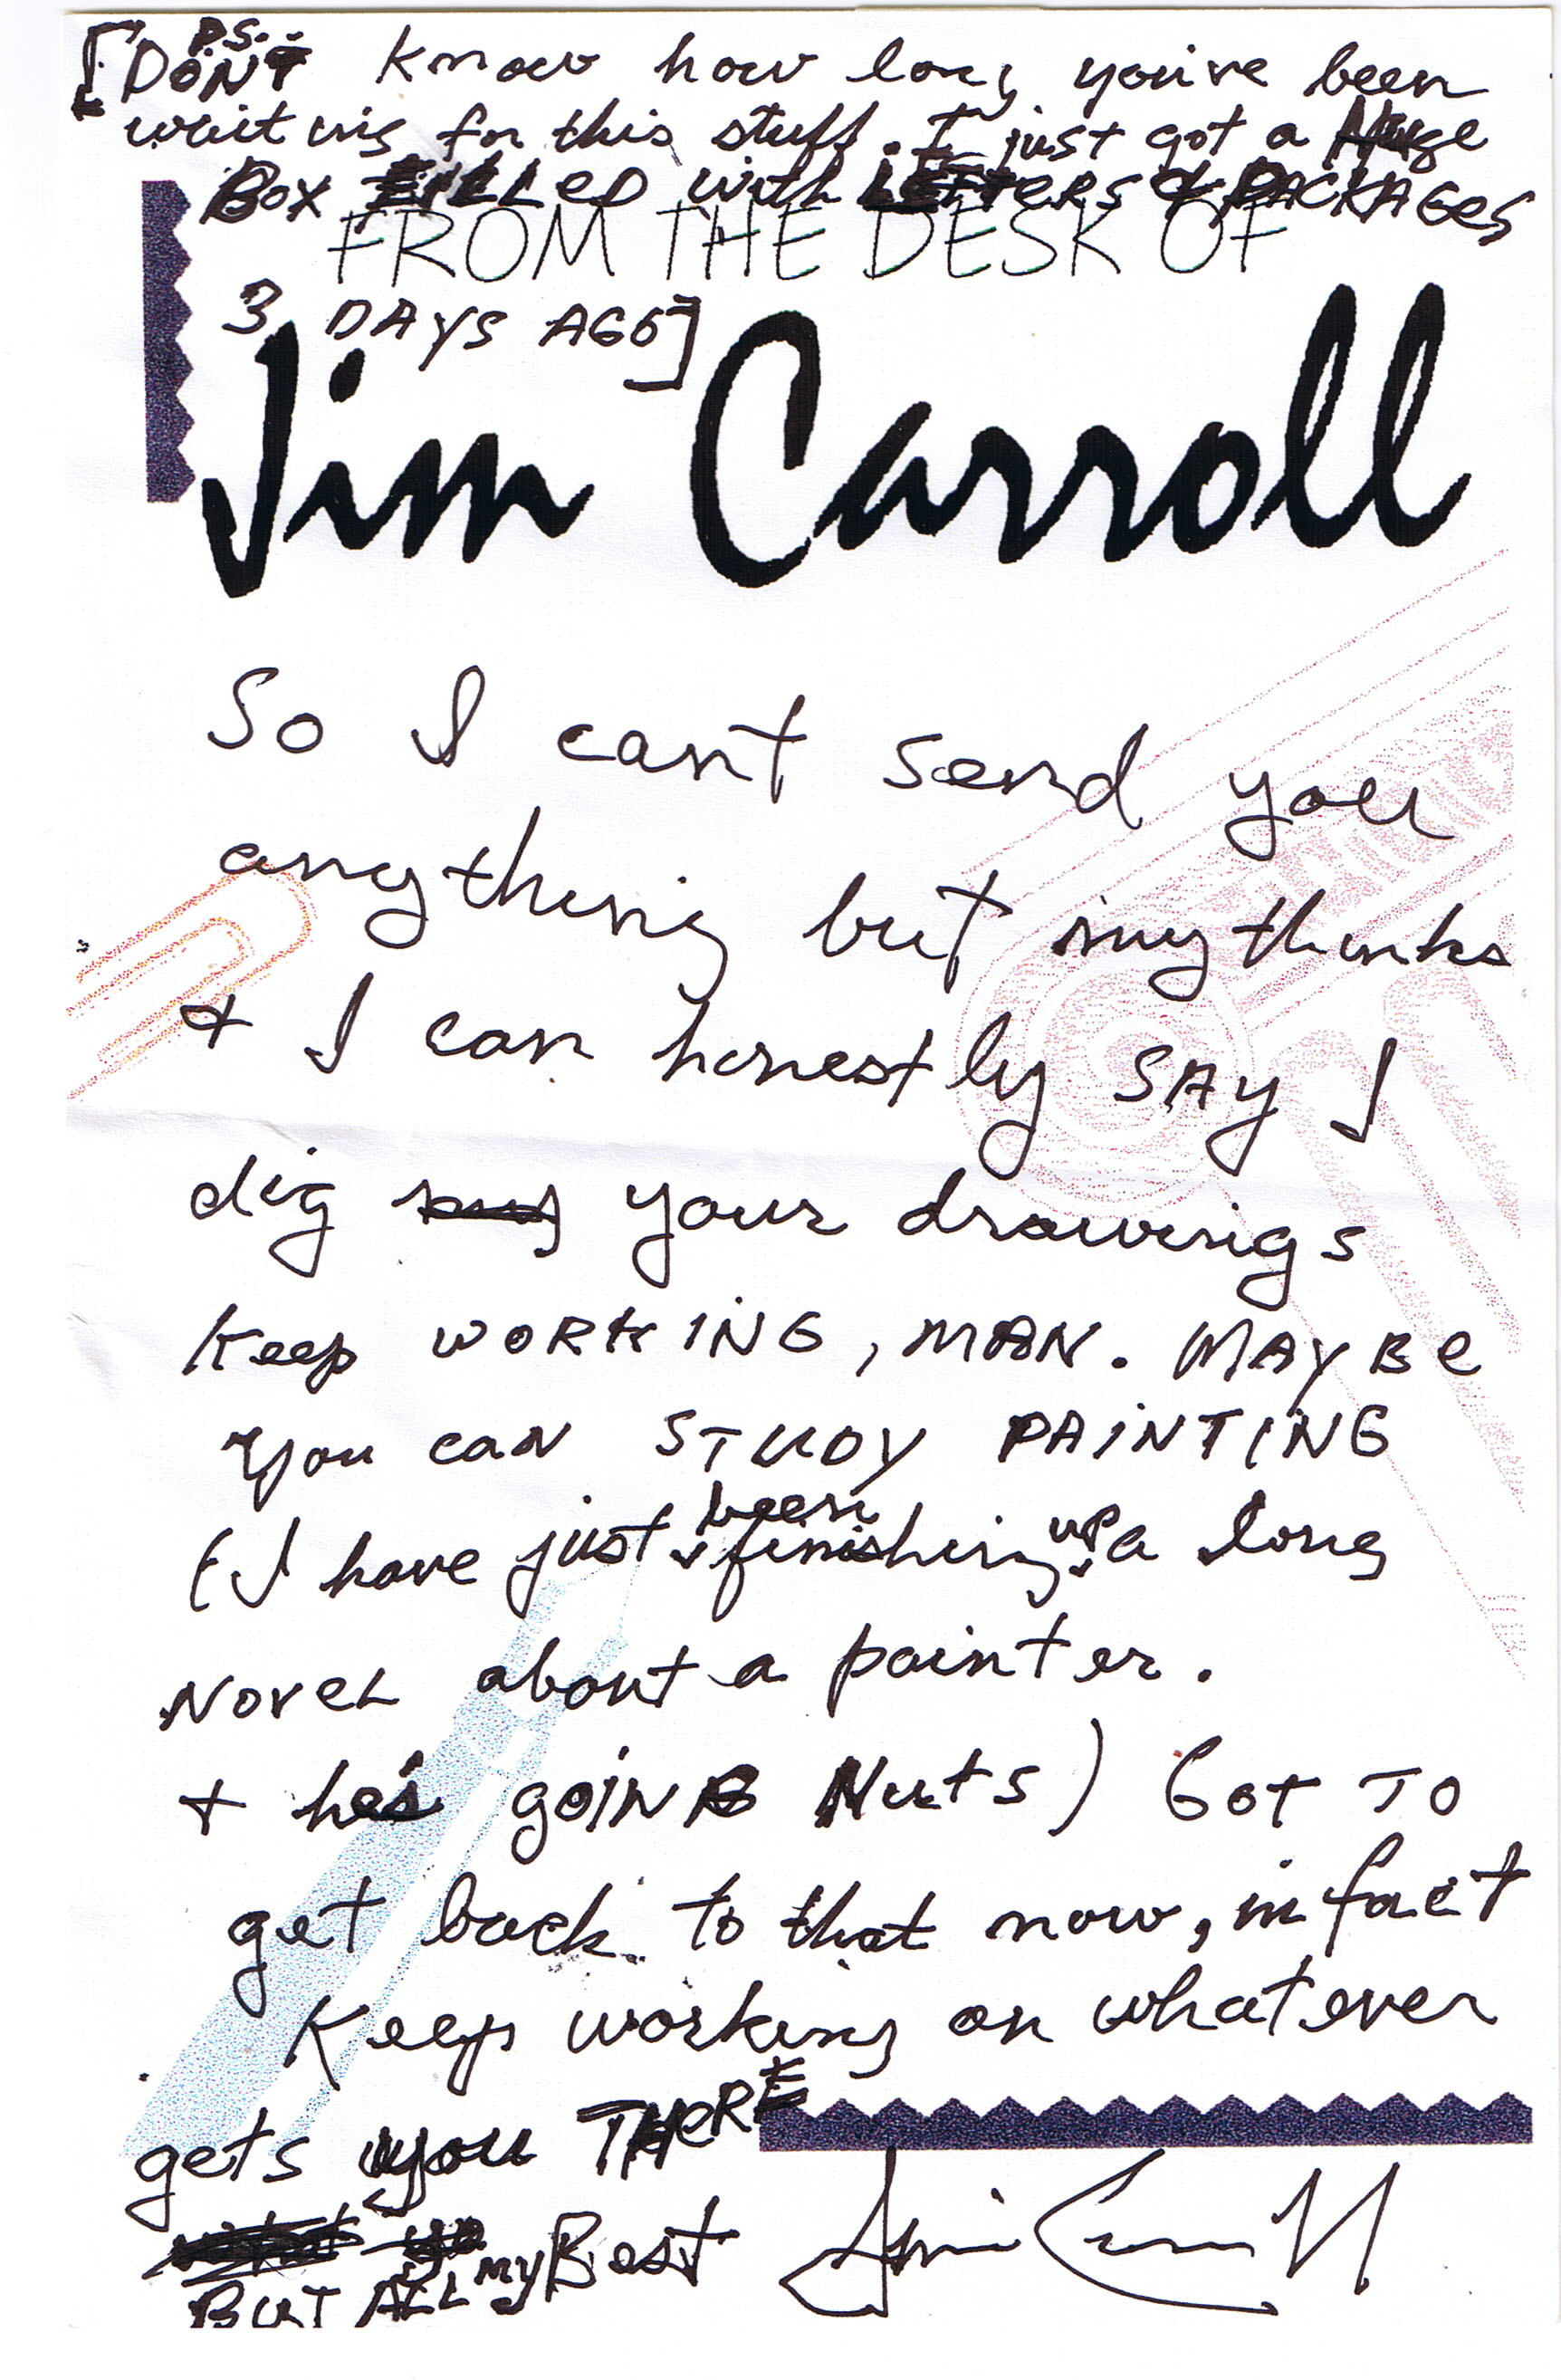 [P.S. DON'T know how long you've been
waiting for this stuff. I just got a Huge
Box FILLED with LETTERS & PACKAGES
FROM THE DESK OF
3 DAYS AGO]
Jim Carroll
So I can't send you
anything but my thanks
+ I can honestly SAY I
dig your drawings
Keep WORKING, MAN. MAYBE
You can STUDY PAINTING
(I have just been finishing up a long
NOVEL about a painter.
+ he's GOING NUTS) GOT TO
get back to that now, in fact
Keep working on whatever
gets you THERE
BUT ALL MY Best Jim Carroll